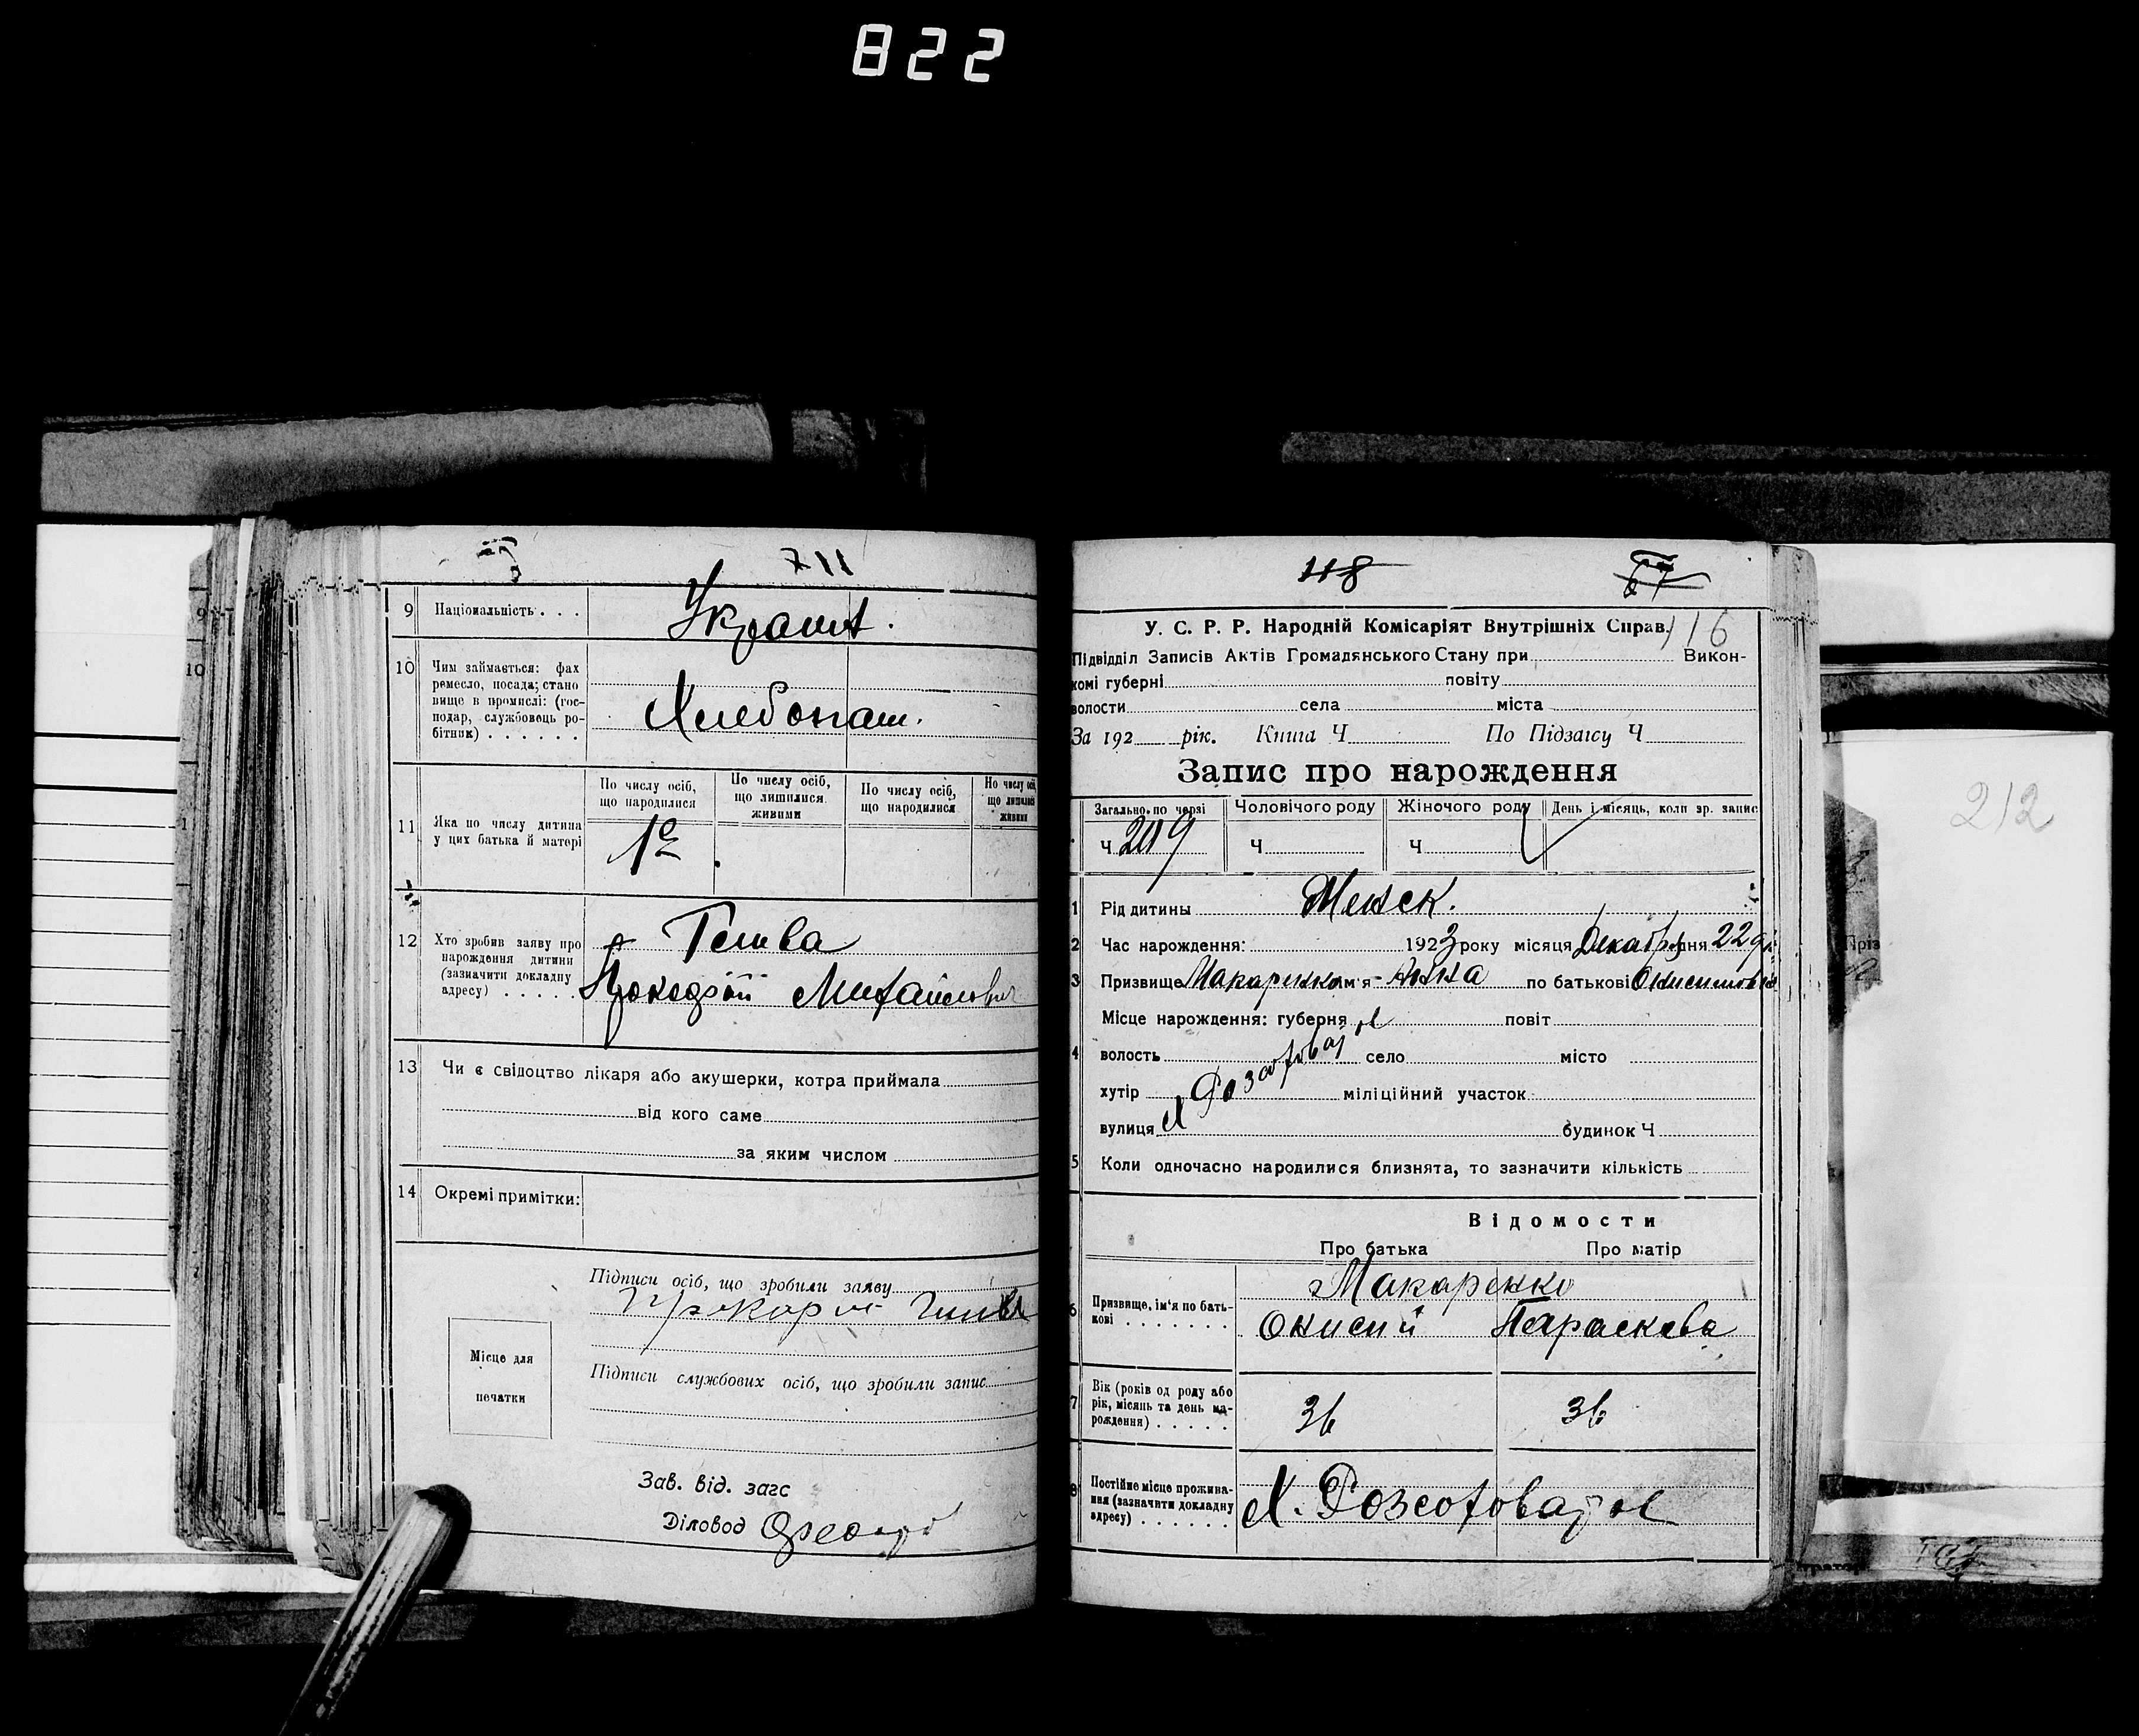 822
711
9 Національність . . .
Украинt.
10 Чим займається: фах
ремесло, посада; стано
вище в промислі: (гос-
подар, службовець ро-
бітник) . . . . . .
Хлебопаш.
11 Яка по числу дитина
у цих батька й матері
По числу осіб,
що народилися
По числу осіб,
що лишилися
живими
По числу осіб,
що народилися
По числу осіб,
що лишилися
живими
1е
12 Хто зробив заяву про
нарождення дитини
(зазначити докладну
адресу) . . . . .
Михайлович
13 Чи є свідоцтво лікаря або акушерки, котра приймала
від кого саме
за яким числом
14 Окремі примітки:
Підписи осіб, що зробили заяву
Місце для
печатки
Підписи службових осіб, що зробили запис
Зав. від. загс
Діловод
118
67
116
У. С. Р. Р. Народній Комісаріят Внутрішніх Справ.
Підвідділ Записів Актів Громадянського Стану при Викон-
комі губерні повіту
волости села міста
За 192 рік. Книга Ч По Підзагсу Ч
Запис про нарождення
Загально, по черзі Чоловічого роду Жіночого роду День і місяць, коли зр. запис
Ч 209 Ч Ч
1 Рід дитины Женск.
2 Час нарождення: 1923 року місяця Декабря дня 22
3 Призвище Макаренко ім'я - Анна по батькові Онисимовна
Місце нарождення: губерня повіт
4 волость село місто
хутір міліційний участок
вулиця будинок Ч
5 Коли одночасно народилися близнята, то зазначити кількість
Відомости
Про батька Про матір
6 Призвище, ім'я по бать-
кові . . . . . . .
Макаренко
Онисий Параскева
7 Вік (років од роду або
рік, місяць та день на-
рождення) . . . . .
36 36
8 Постійне місце прожива-
ння (зазначити докладну
адресу) . . . . . .
Х.
212